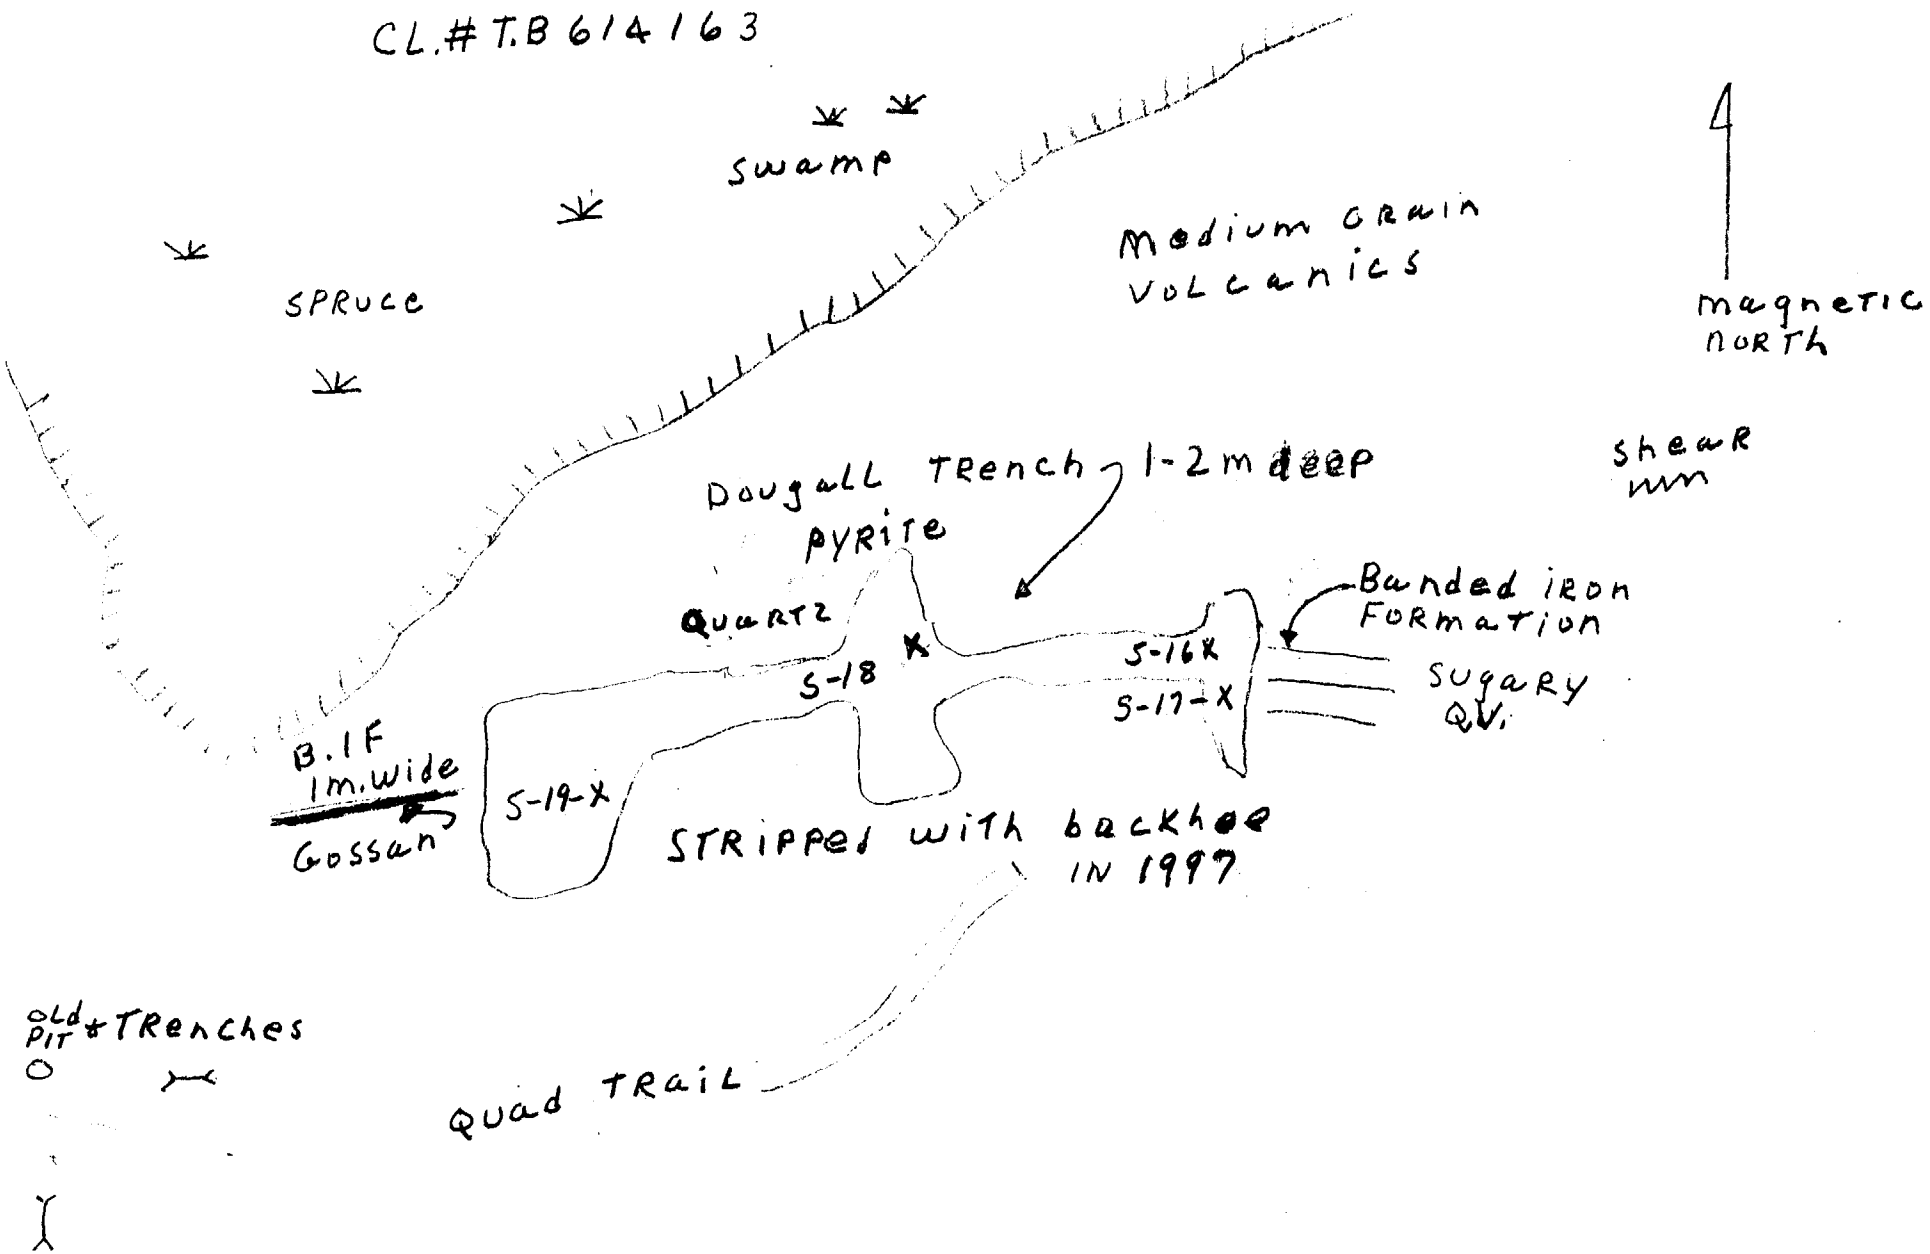 CL.# T.B 614163
swamp
SPRUCE
Medium GRain
VOLcanics
magneTIC
NORTh
sheaR
DougaLL TRench 1-2 m deep
PYRiTe
QuaRTZ
Banded iRon
FORmaTion
S-18 X
S-16X
S-17-X
SUgaRy
QV.
B.IF
1m.wide
Gossan
S-19-X
STRiPPed wiTh backhoe
IN 1997
OLd
PIT & TRenches
Quad TRaiL